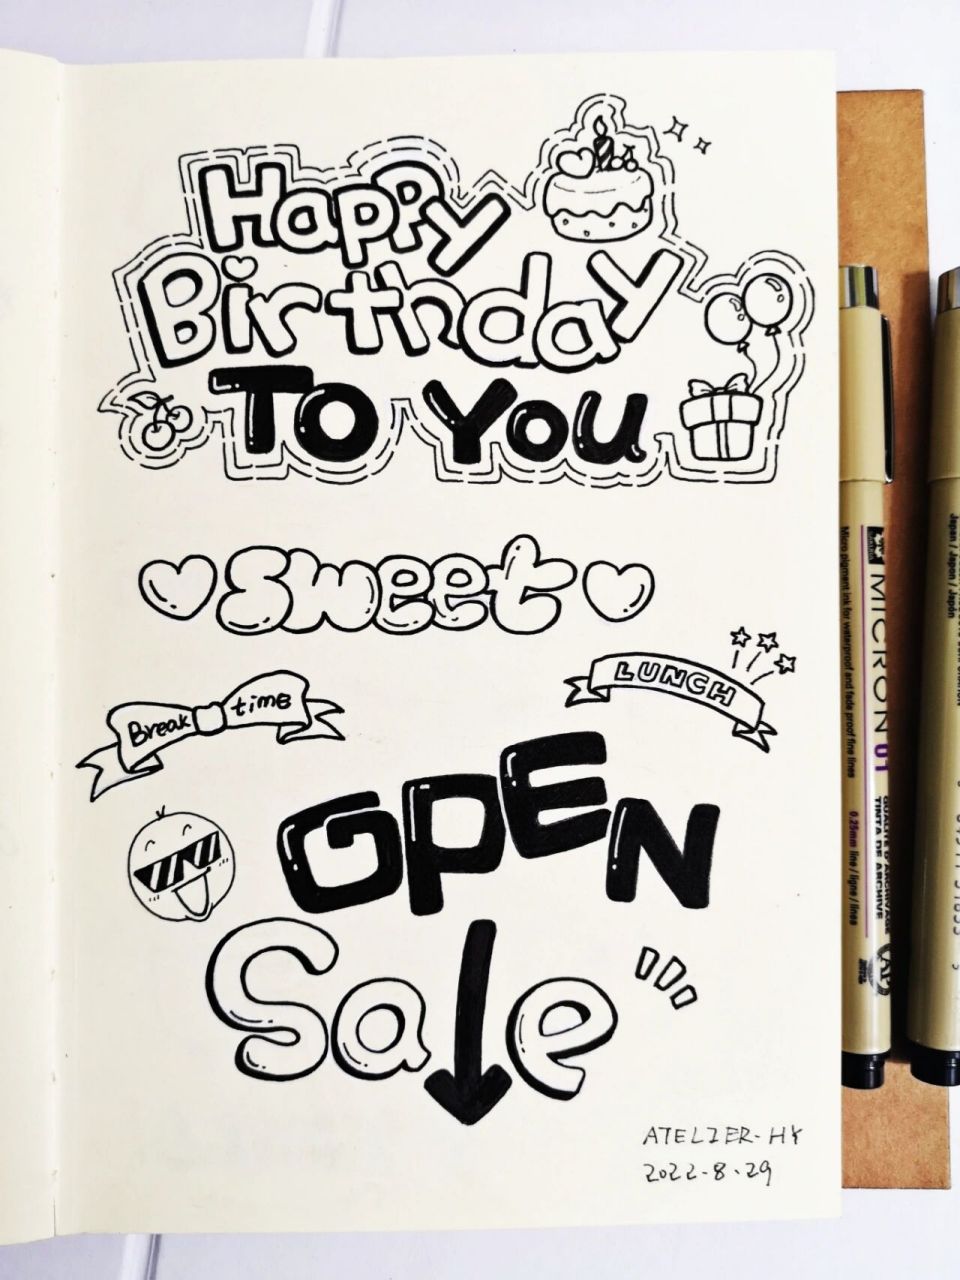 Happy
Birthday
To You
sweet
Break time
LUNCH
OPEN
Sale
ATELIER-HY
2022-8.29
MICRON 01
Micro pigment ink for waterproof and fade proof fine lines
0.25mm line / ligne / lines
TINTA DE ARCHIVE
Japan / Japon / Japón